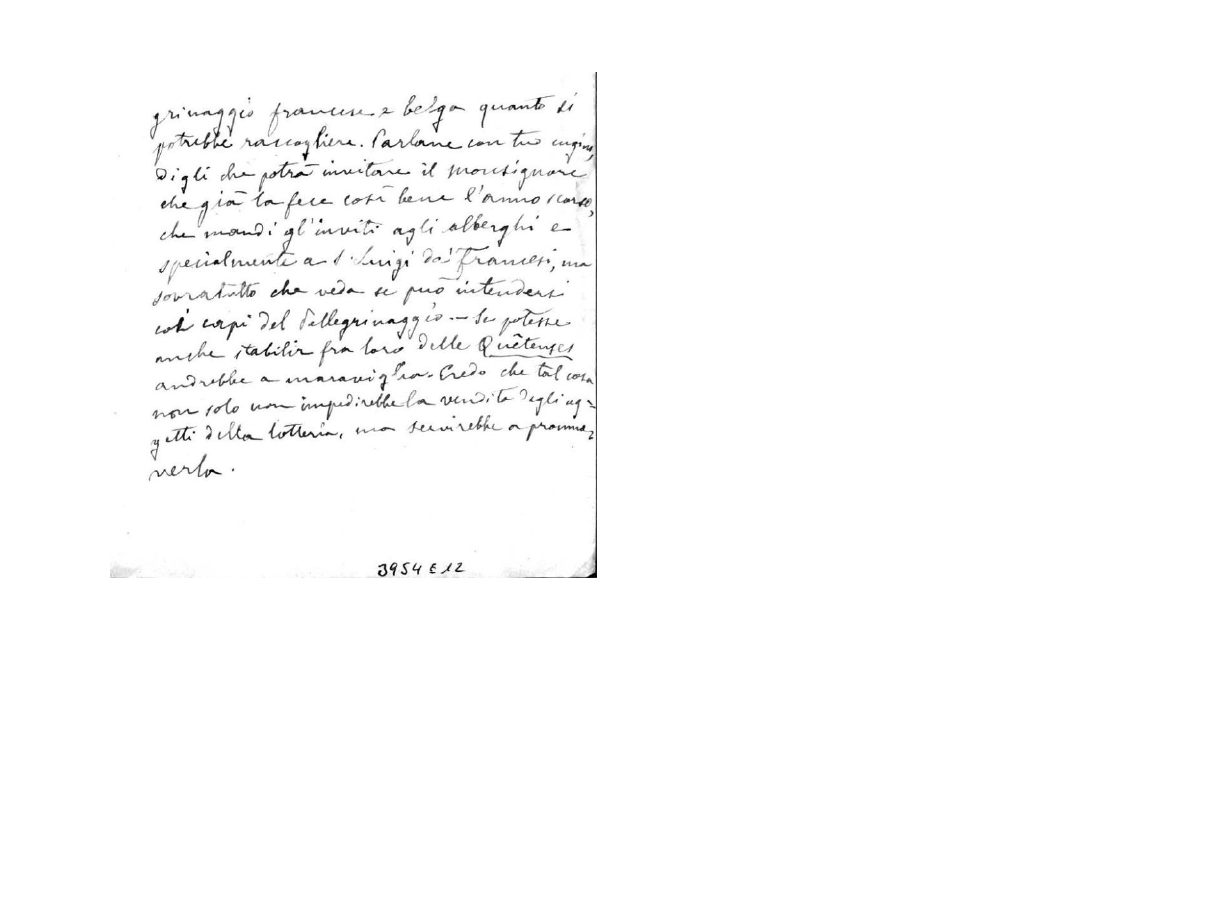 grinaggio francese e belga quanto si
potrebbe raccogliere. Parlane con tuo cugino,
digli che potrà invitare il monsignore
che già la fece così bene l'anno scorso,
che mandi gl'inviti agli alberghi e
specialmente a S. Luigi de' Francesi, ma
sovratutto che veda se può intendersi
coi capi del Pellegrinaggio – Se potesse
anche stabilir fra loro delle Quêteuses
andrebbe a maraviglia. Credo che tal cosa
non solo non impedirebbe la vendita degli og=
getti della lotteria, ma servirebbe a promuo=
verla.
3954 E 12